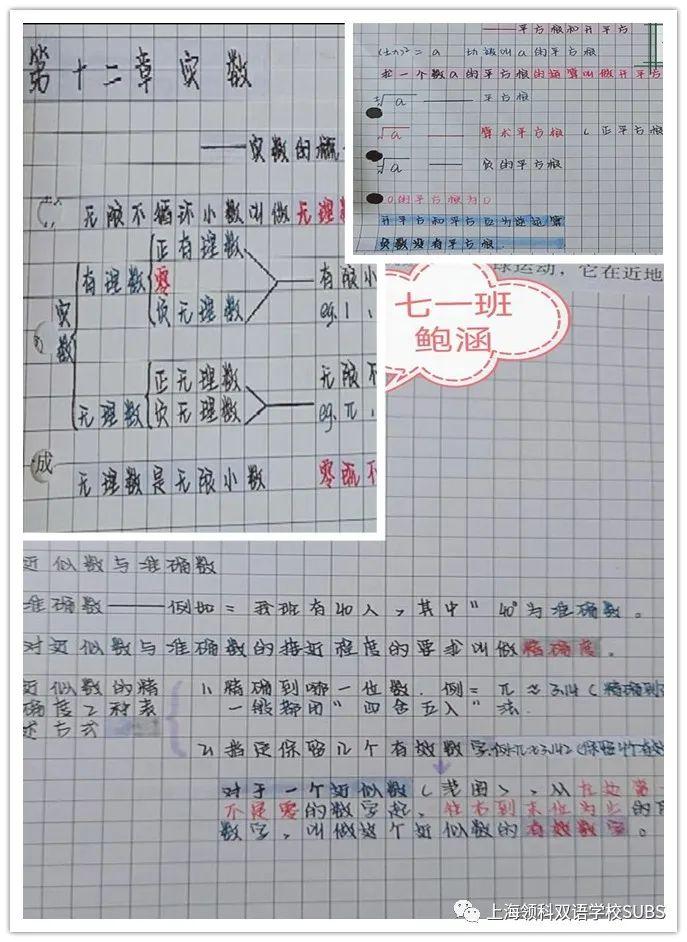 第十二章 实数
——实数的概
无限不循环小数叫做无理数
实数
有理数
正有理数
零
负有理数
有限小
eg. 1,
无理数
正无理数
负无理数
无限不
eg. π,
成
无理数是无限小数 零既不
——平方根和开平方
(±a)² = a ±a就叫a的平方根
求一个数a的平方根的运算叫做开平方
±√a —— 平方根
√a —— 算术平方根 (正平方根
-√a —— 负的平方根
0的平方根为0
开平方和平方互为逆运算
负数没有平方根.
球运动,它在近地
七一班
鲍涵
近似数与准确数
准确数——例如=我班有40人,其中"40"为准确数。
对近似数与准确数的接近程度的要求叫做精确度。
近似数的精
确度2种表
述方式
1、精确到哪一位数.例= π≈3.14(精确到
一般都用"四舍五入"法.
2、指定保留几个有效数字 例π≈3.142(保留4个有效
对于一个近似数(范围),从左边第一
不是零的数字起,往右到末位为止的所
数字,叫做这个近似数的有效数字。
上海领科双语学校SUBS